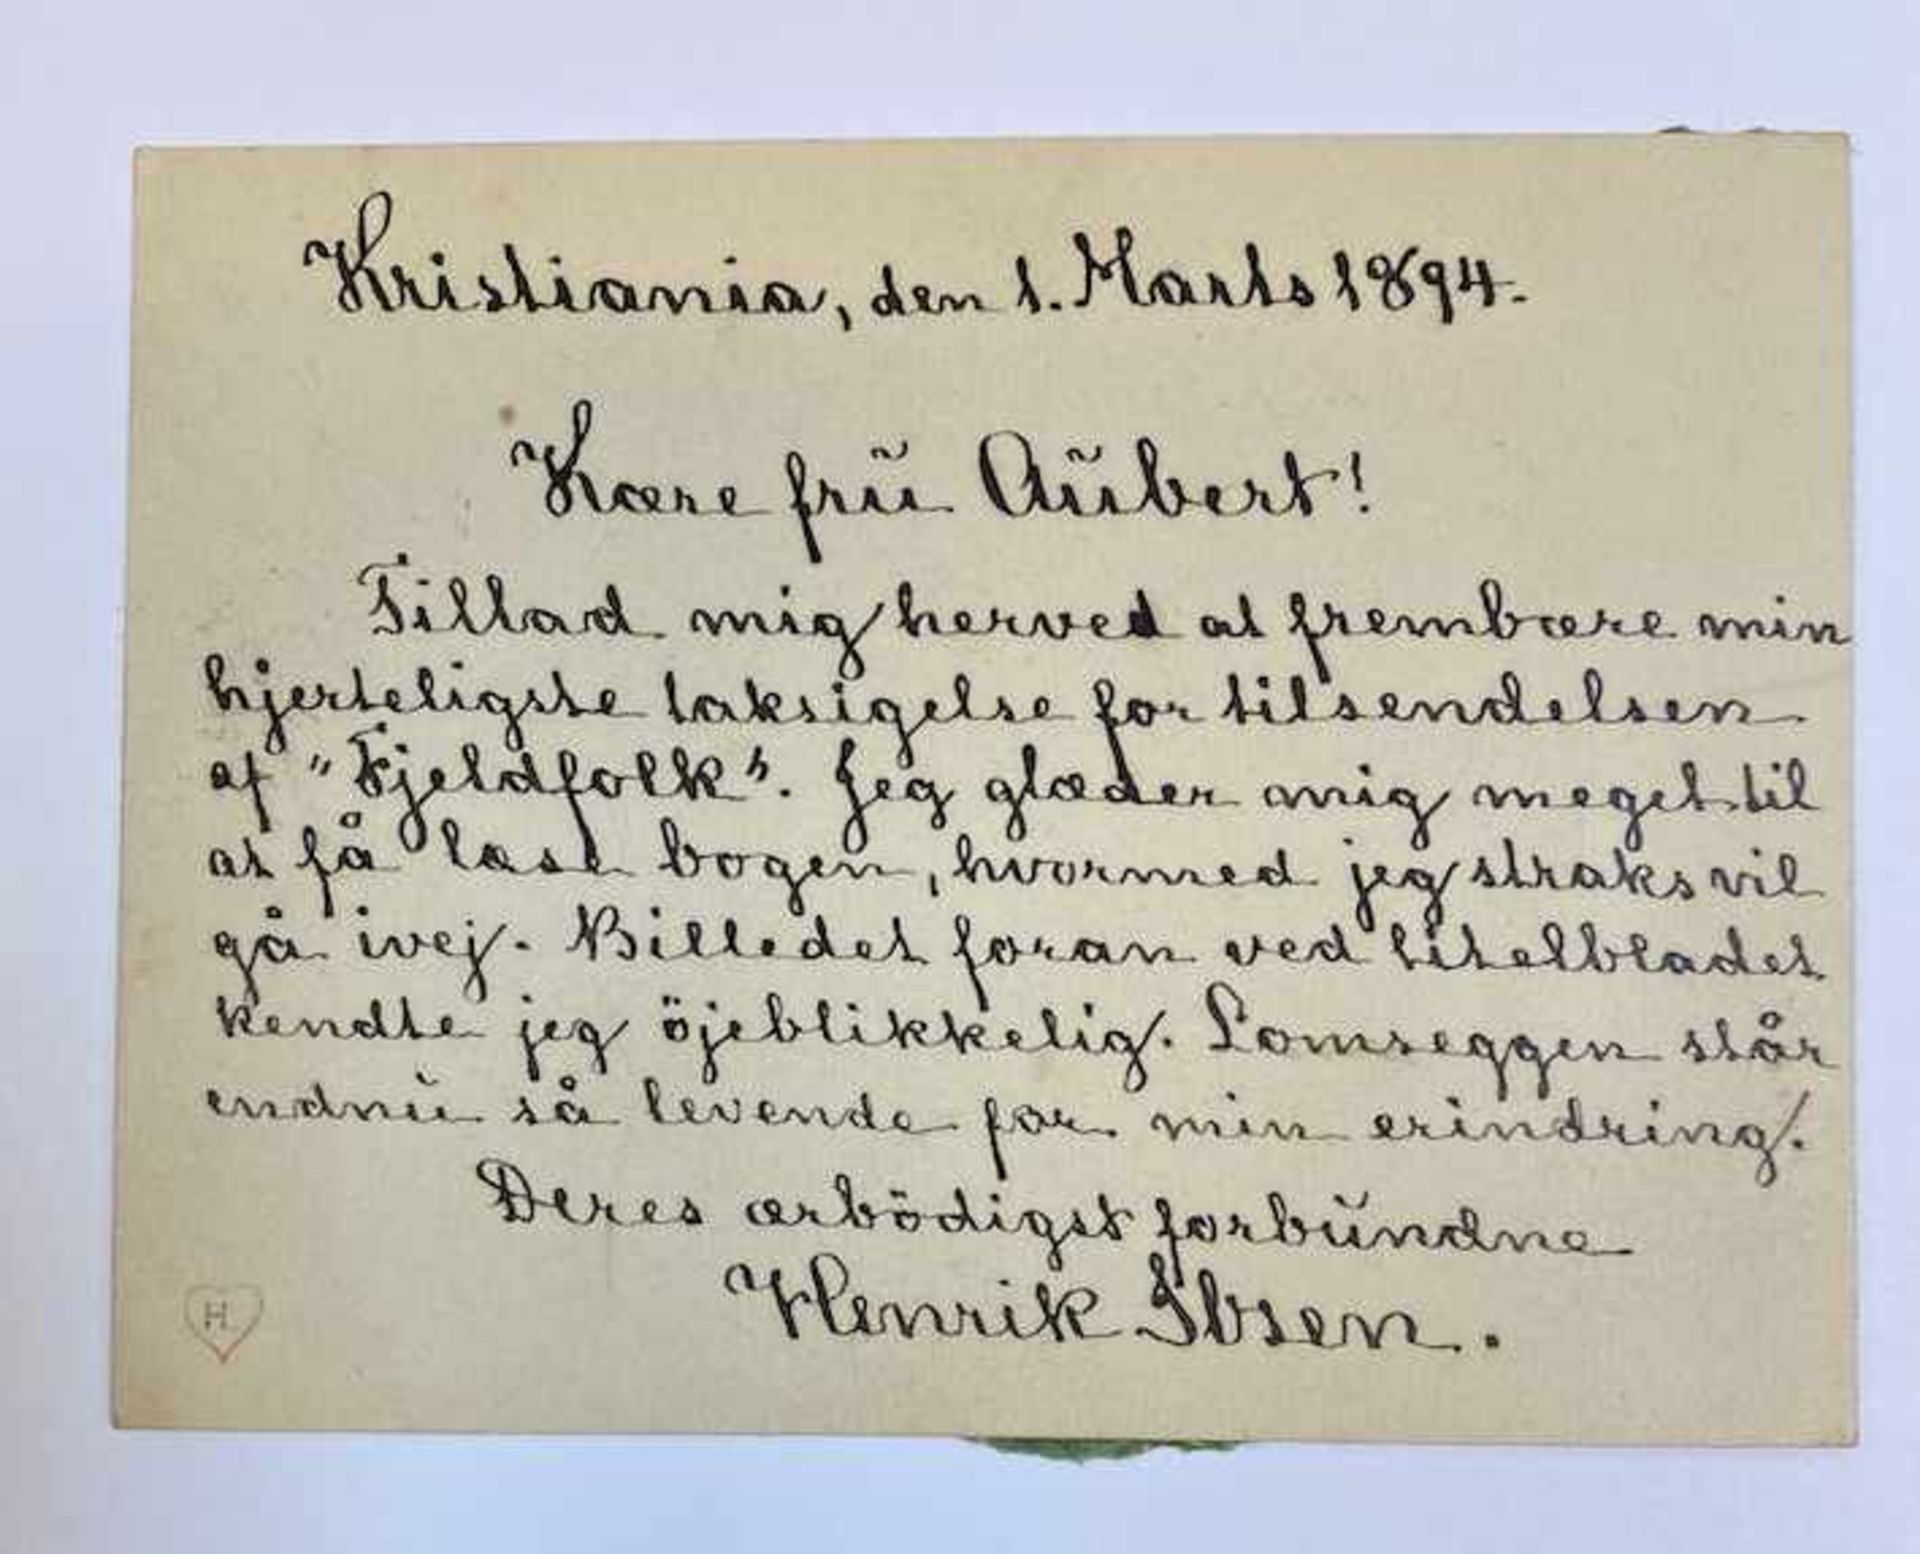 Kristiania, den 1. Marts 1894.
Kære frŭ Aŭbert!
Tillad mig herved at frembære min
hjerteligste taksigelse for tilsendelsen
af "Fjeldfolk". Jeg glæder mig meget til
at få læse bogen, hvormed jeg straks vil
gå ivej. Billedet foran ved titelbladet
kendte jeg öjeblikkelig. Lomseggen står
endnŭ så levende for min erindring.
Deres ærbödigst forbŭndne
Henrik Ibsen.
H